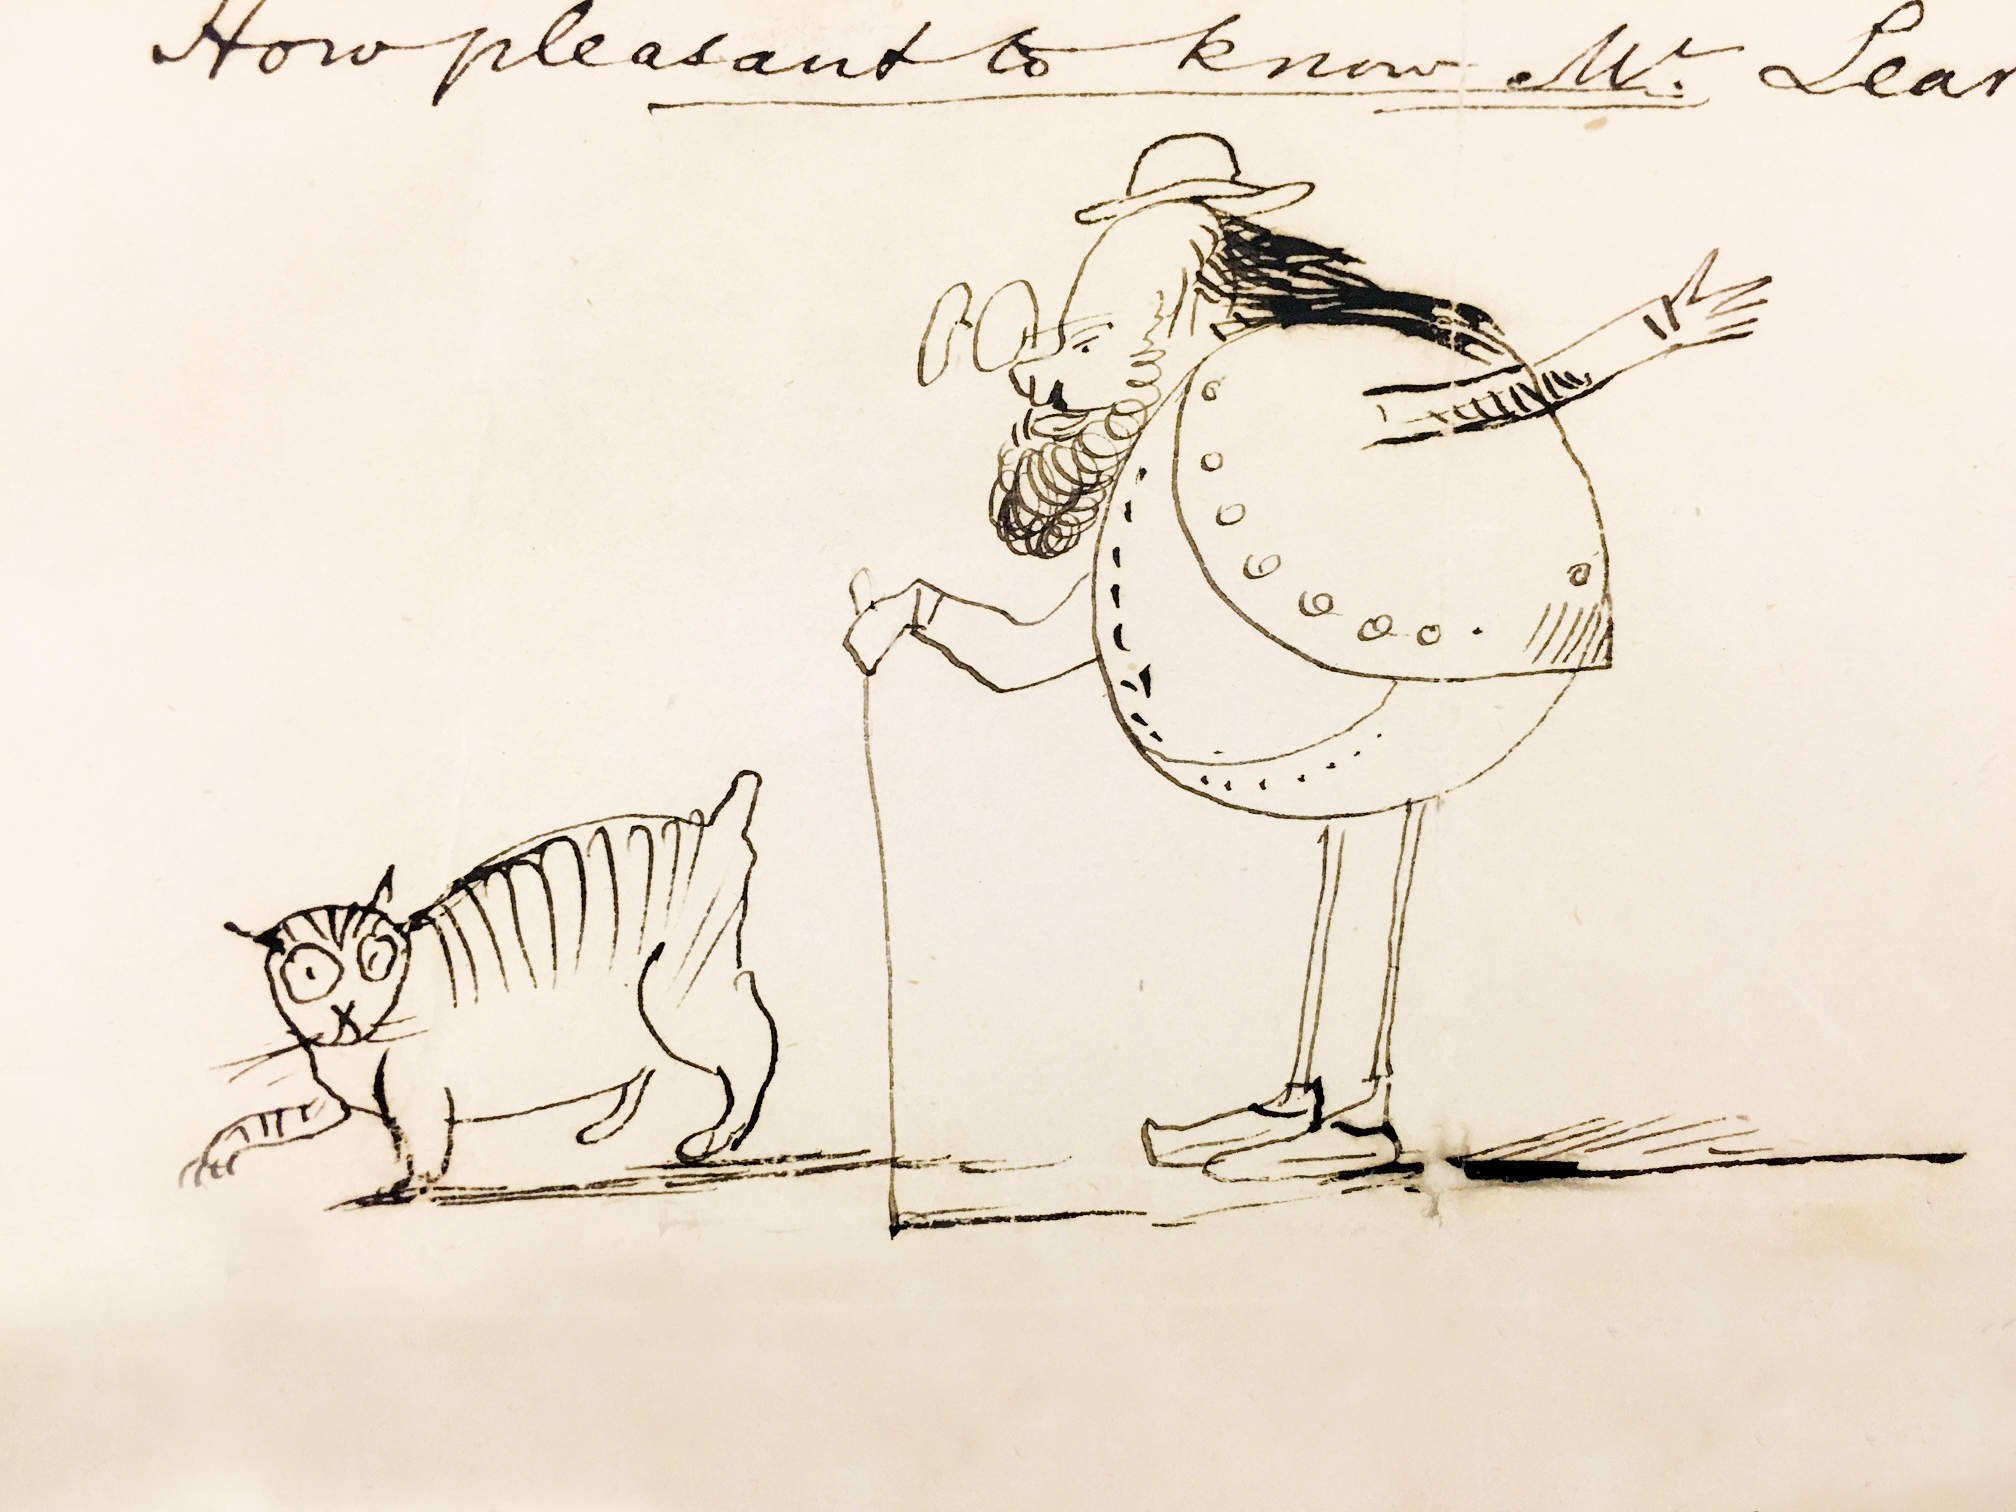 How pleasant to know Mr. Lear